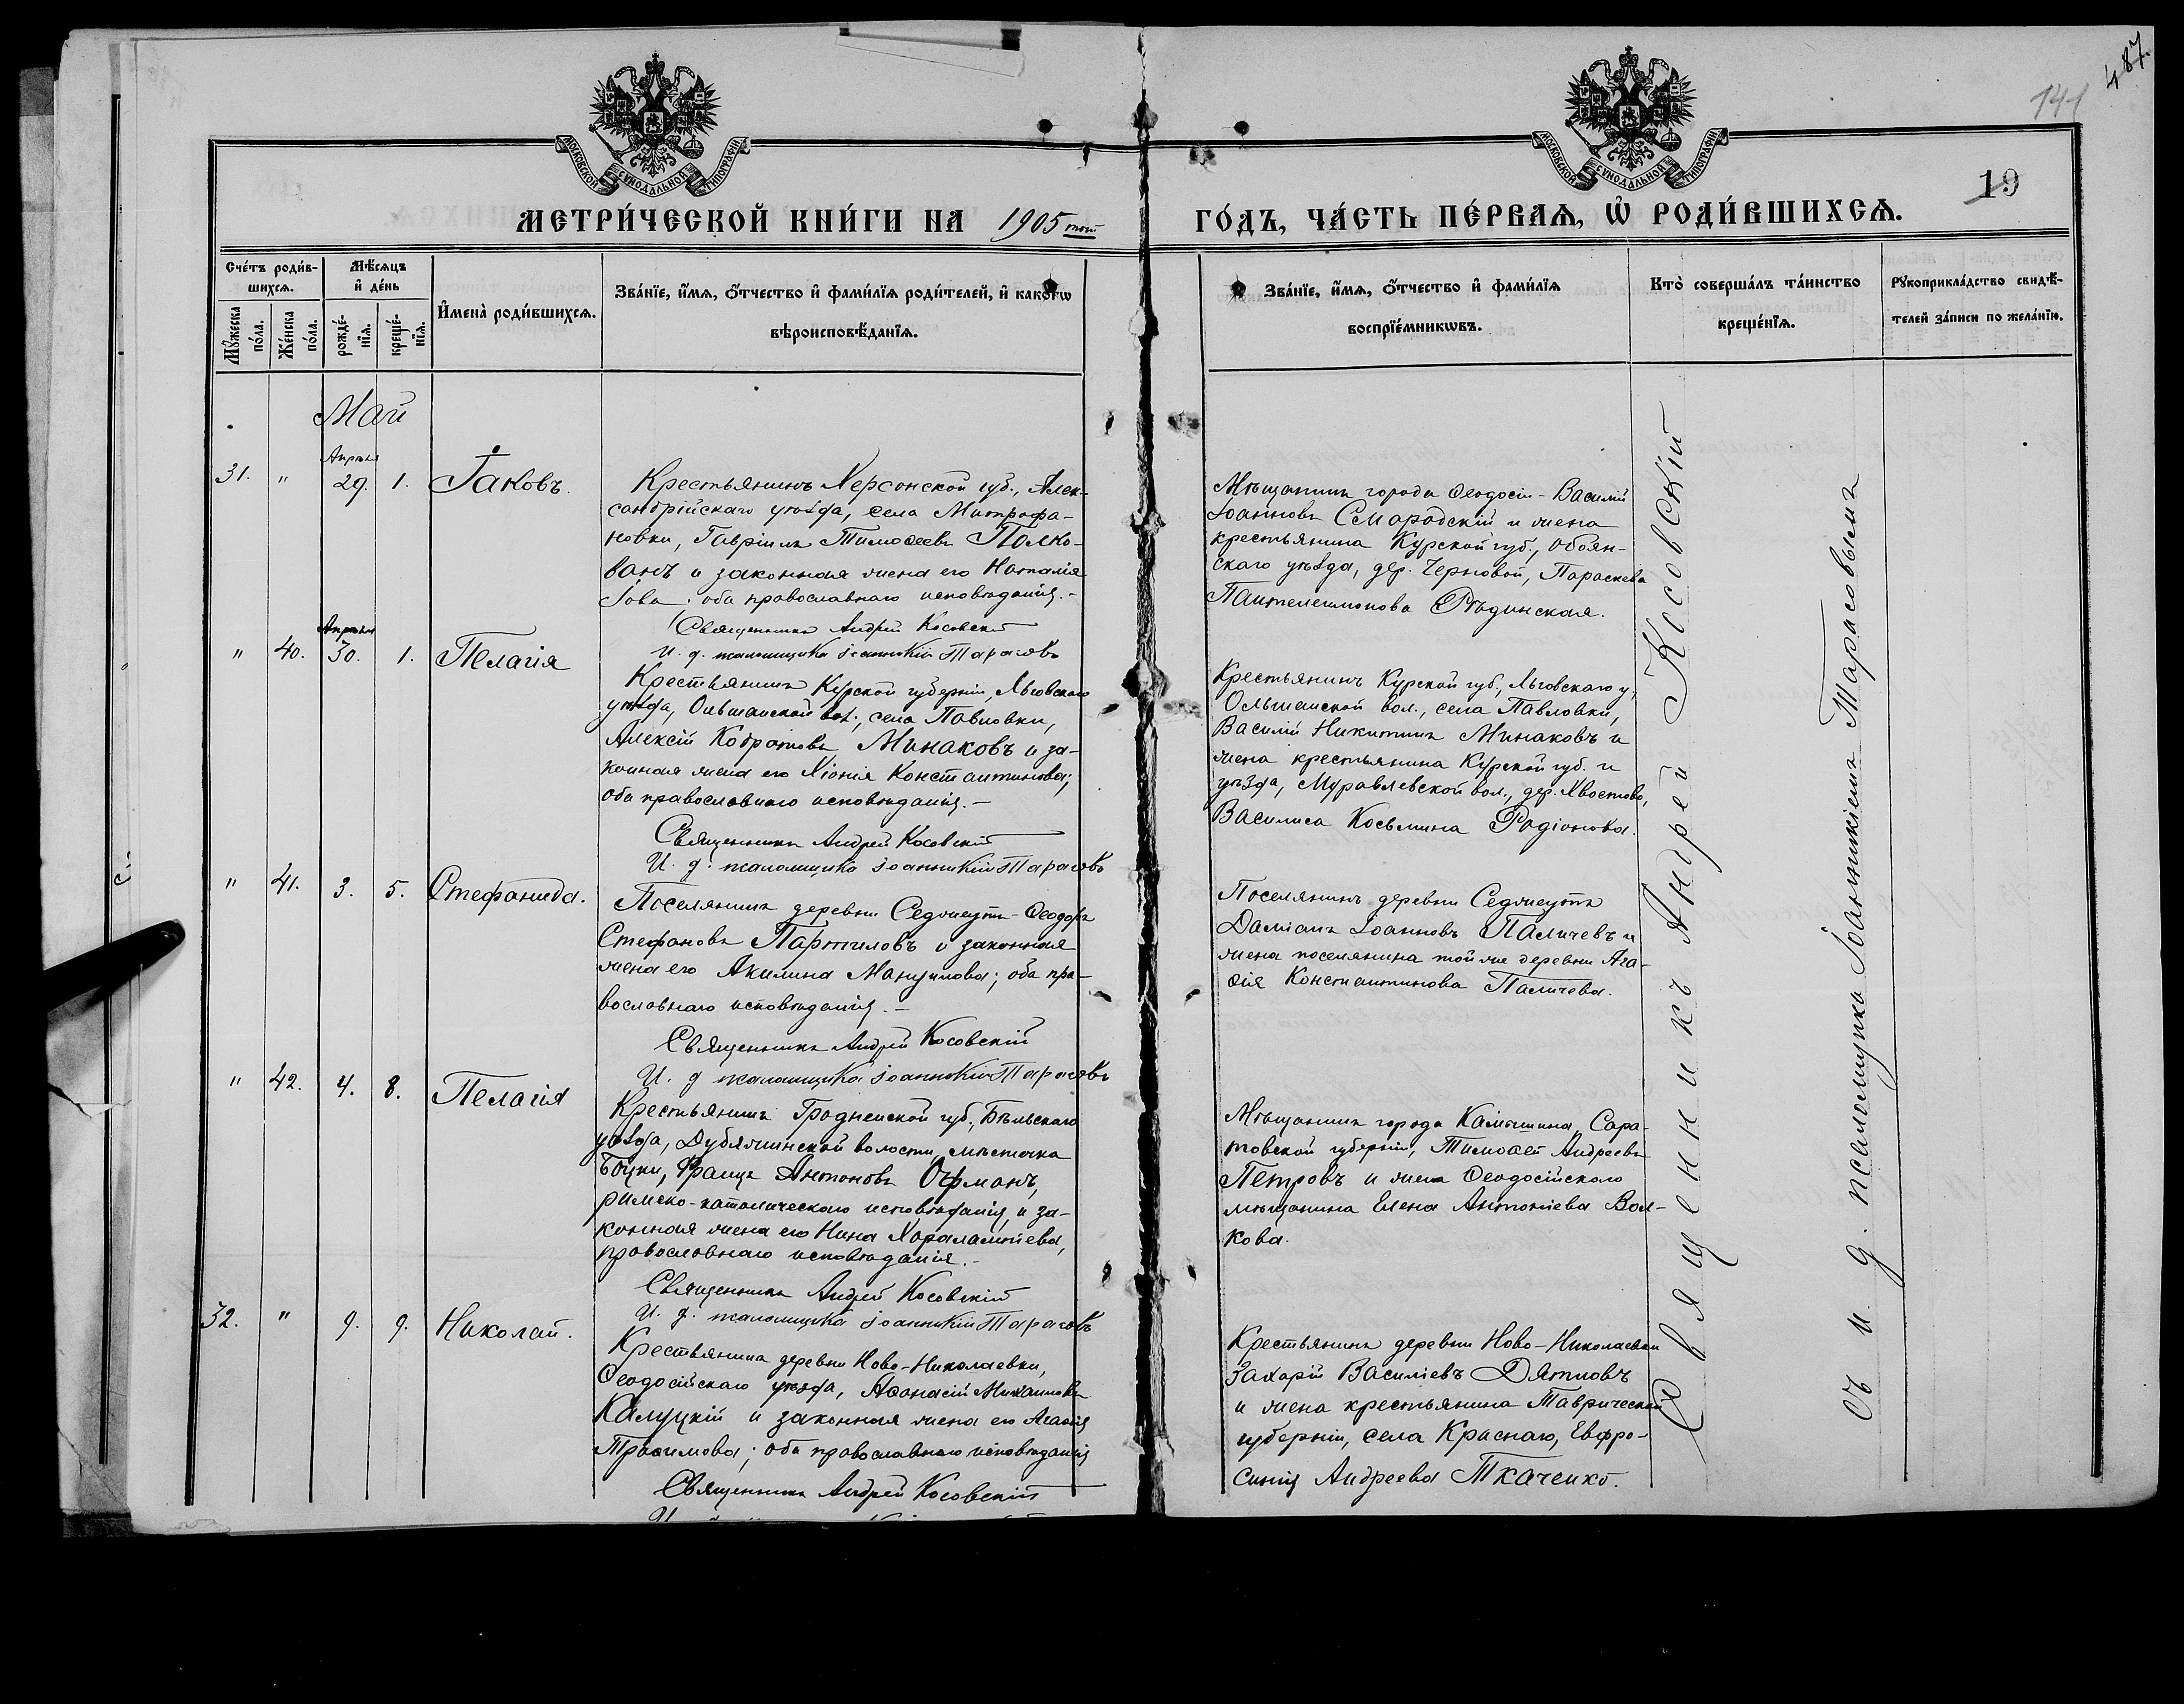 487.
141
19
МОСКОВСКОЙ СѴНОДАЛЬНОЙ ТИПОГРАФІИ
МОСКОВСКОЙ СѴНОДАЛЬНОЙ ТИПОГРАФІИ
МЕТРИ́ЧЕСКОЙ КНИ́ГИ НА 1905 ГО́ДЪ, ЧА́СТЬ ПЕ́РВАѦ, Ѡ҆ РОДИ́ВШИХСѦ.
Сче́тъ роди́в-
шихсѧ.
Мꙋжеска по́ла.
Же́нска по́ла.
Мѣ́сѧцъ и҆ де́нь
рожде́-
нїѧ.
креще́-
нїѧ.
И҆мена̀ роди́вшихсѧ.
Зва́нїе, и҆́мѧ, ѻ҆́тчество и҆ фами́лїѧ роди́телей, и҆ како́гѡ
вѣроисповѣ́данїѧ.
Зва́нїе, и҆́мѧ, ѻ҆́тчество и҆ фами́лїѧ
воспрїе́мникѡвъ.
Кто̀ соверша́лъ та́инство
креще́нїѧ.
Рꙋкоприкла́дство свидѣ́-
телей за́писи по жела́нїю.
Май
31. " Апрѣля 29. 1. Іаковъ.
Крестьянинъ Херсонской губ., Алек-
сандрійскаго уѣзда, села Митрофа-
новки, Гавріилъ Тимоѳеевъ Полко-
ванъ и законная жена его Наталія
Іова; оба православнаго исповѣданія.-
Священникъ Андрей Косовскій
И. д. псаломщика Іоанникій Тарасовъ
Мѣщанинъ города Ѳеодосіи - Василій
Іоанновъ Смарадскій и жена
крестьянина Курской губ., Обоян-
скаго уѣзда, дер. Черновой, Параскева
Пантелеимонова Рѣдинская.
" 40. Апрѣля 30. 1. Пелагія
Крестьянинъ Курской губерніи, Льговскаго
уѣзда, Ольшанской вол., села Павловки,
Алексій Кодратовъ Минаковъ и за-
конная жена его Хіонія Константинова;
оба православнаго исповѣданія.-
Священникъ Андрей Косовскій
И. д. псаломщика Іоанникій Тарасовъ
Крестьянинъ Курской губ., Льговскаго у.,
Ольшанской вол., села Павловки,
Василій Никитинъ Минаковъ и
жена крестьянина Курской губ. и
уѣзда, Муравлевской вол., дер. Хвостово,
Василиса Косьмина Родіонова.
" 41. 3. 5. Стефанида.
Поселянинъ деревни Седжеутъ - Ѳеодоръ
Стефановъ Партиловъ и законная
жена его Акилина Мануилова; оба пра-
вославнаго исповѣданія.-
Священникъ Андрей Косовскій
И. д псаломщика Іоанникій Тарасовъ
Поселянинъ деревни Седжеутъ
Даміанъ Іоанновъ Паличевъ и
жена поселянина той же деревни Ага-
ѳія Константинова Паличева.
" 42. 4. 8. Пелагія
Крестьянинъ Гродненской губ., Бѣльскаго
уѣзда, Дубяжинской волости, мѣстечка
Боцки, Францъ Антоновъ Офманъ,
римско-католическаго исповѣданія, и за-
конная жена его Нина Харалампіева,
православнаго исповѣданія.-
Священникъ Андрей Косовскій
И. д. псаломщика Іоанникій Тарасовъ
Мѣщанинъ города Камышина, Сара-
товской губерніи, Тимоѳей Андреевъ
Петровъ и жена Ѳеодосійскаго
мѣщанина Елена Антоніева Вол-
кова.
32. " 9. 9. Николай.
Крестьянинъ деревни Ново-Николаевки,
Ѳеодосійскаго уѣзда, Аѳанасій Михаиловъ
Калуцкій и законная жена его Агаѳія
Трофимова; оба православнаго исповѣданія
Священникъ Андрей Косовскій
Крестьянинъ деревни Ново-Николаевки
Захарій Василіевъ Дятловъ
и жена крестьянина Таврической
губерніи, села Краснаго, Евфро-
синія Андреева Ткаченко.
Священникъ Андрей Косовскій
съ и. д. псаломщика Іоанникіемъ Тарасовымъ